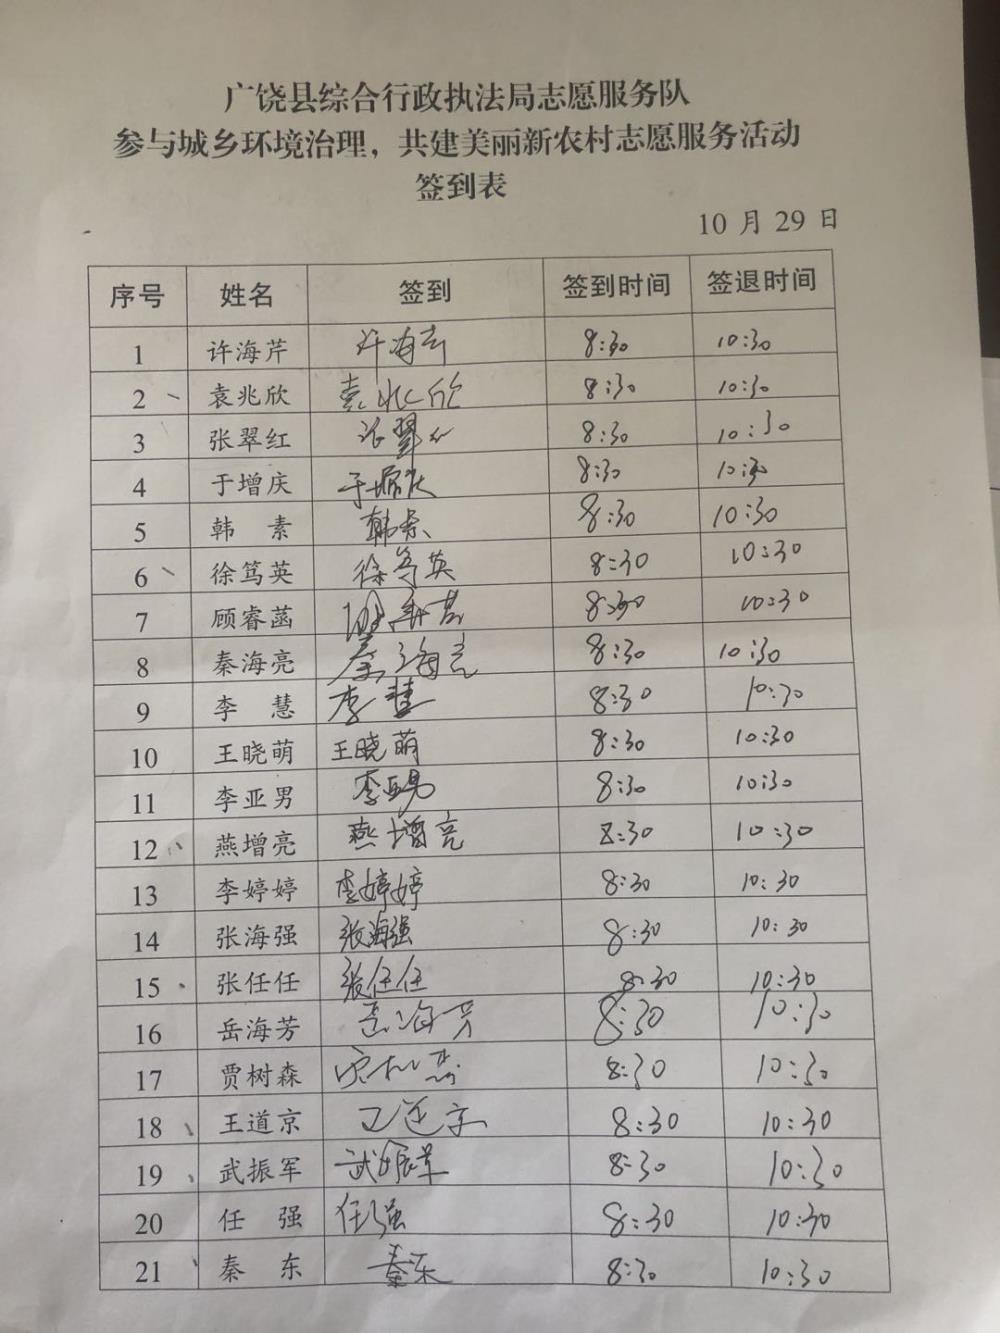 广饶县综合行政执法局志愿服务队
参与城乡环境治理，共建美丽新农村志愿服务活动
签到表
10 月 29 日
序号 姓名 签到 签到时间 签退时间
1 许海芹 许海芹 8:30 10:30
2 袁兆欣 袁兆欣 8:30 10:30
3 张翠红 张翠红 8:30 10:30
4 于增庆 于增庆 8:30 10:30
5 韩 素 韩素 8:30 10:30
6 徐笃英 徐笃英 8:30 10:30
7 顾睿菡 8:30 10:30
8 秦海亮 秦海亮 8:30 10:30
9 李 慧 李慧 8:30 10:30
10 王晓萌 王晓萌 8:30 10:30
11 李亚男 李亚男 8:30 10:30
12 燕增亮 燕增亮 8:30 10:30
13 李婷婷 李婷婷 8:30 10:30
14 张海强 张海强 8:30 10:30
15 张任任 张任任 8:30 10:30
16 岳海芳 岳海芳 8:30 10:30
17 贾树森 8:30 10:30
18 王道京 王道京 8:30 10:30
19 武振军 武振军 8:30 10:30
20 任 强 任强 8:30 10:30
21 秦 东 秦东 8:30 10:30